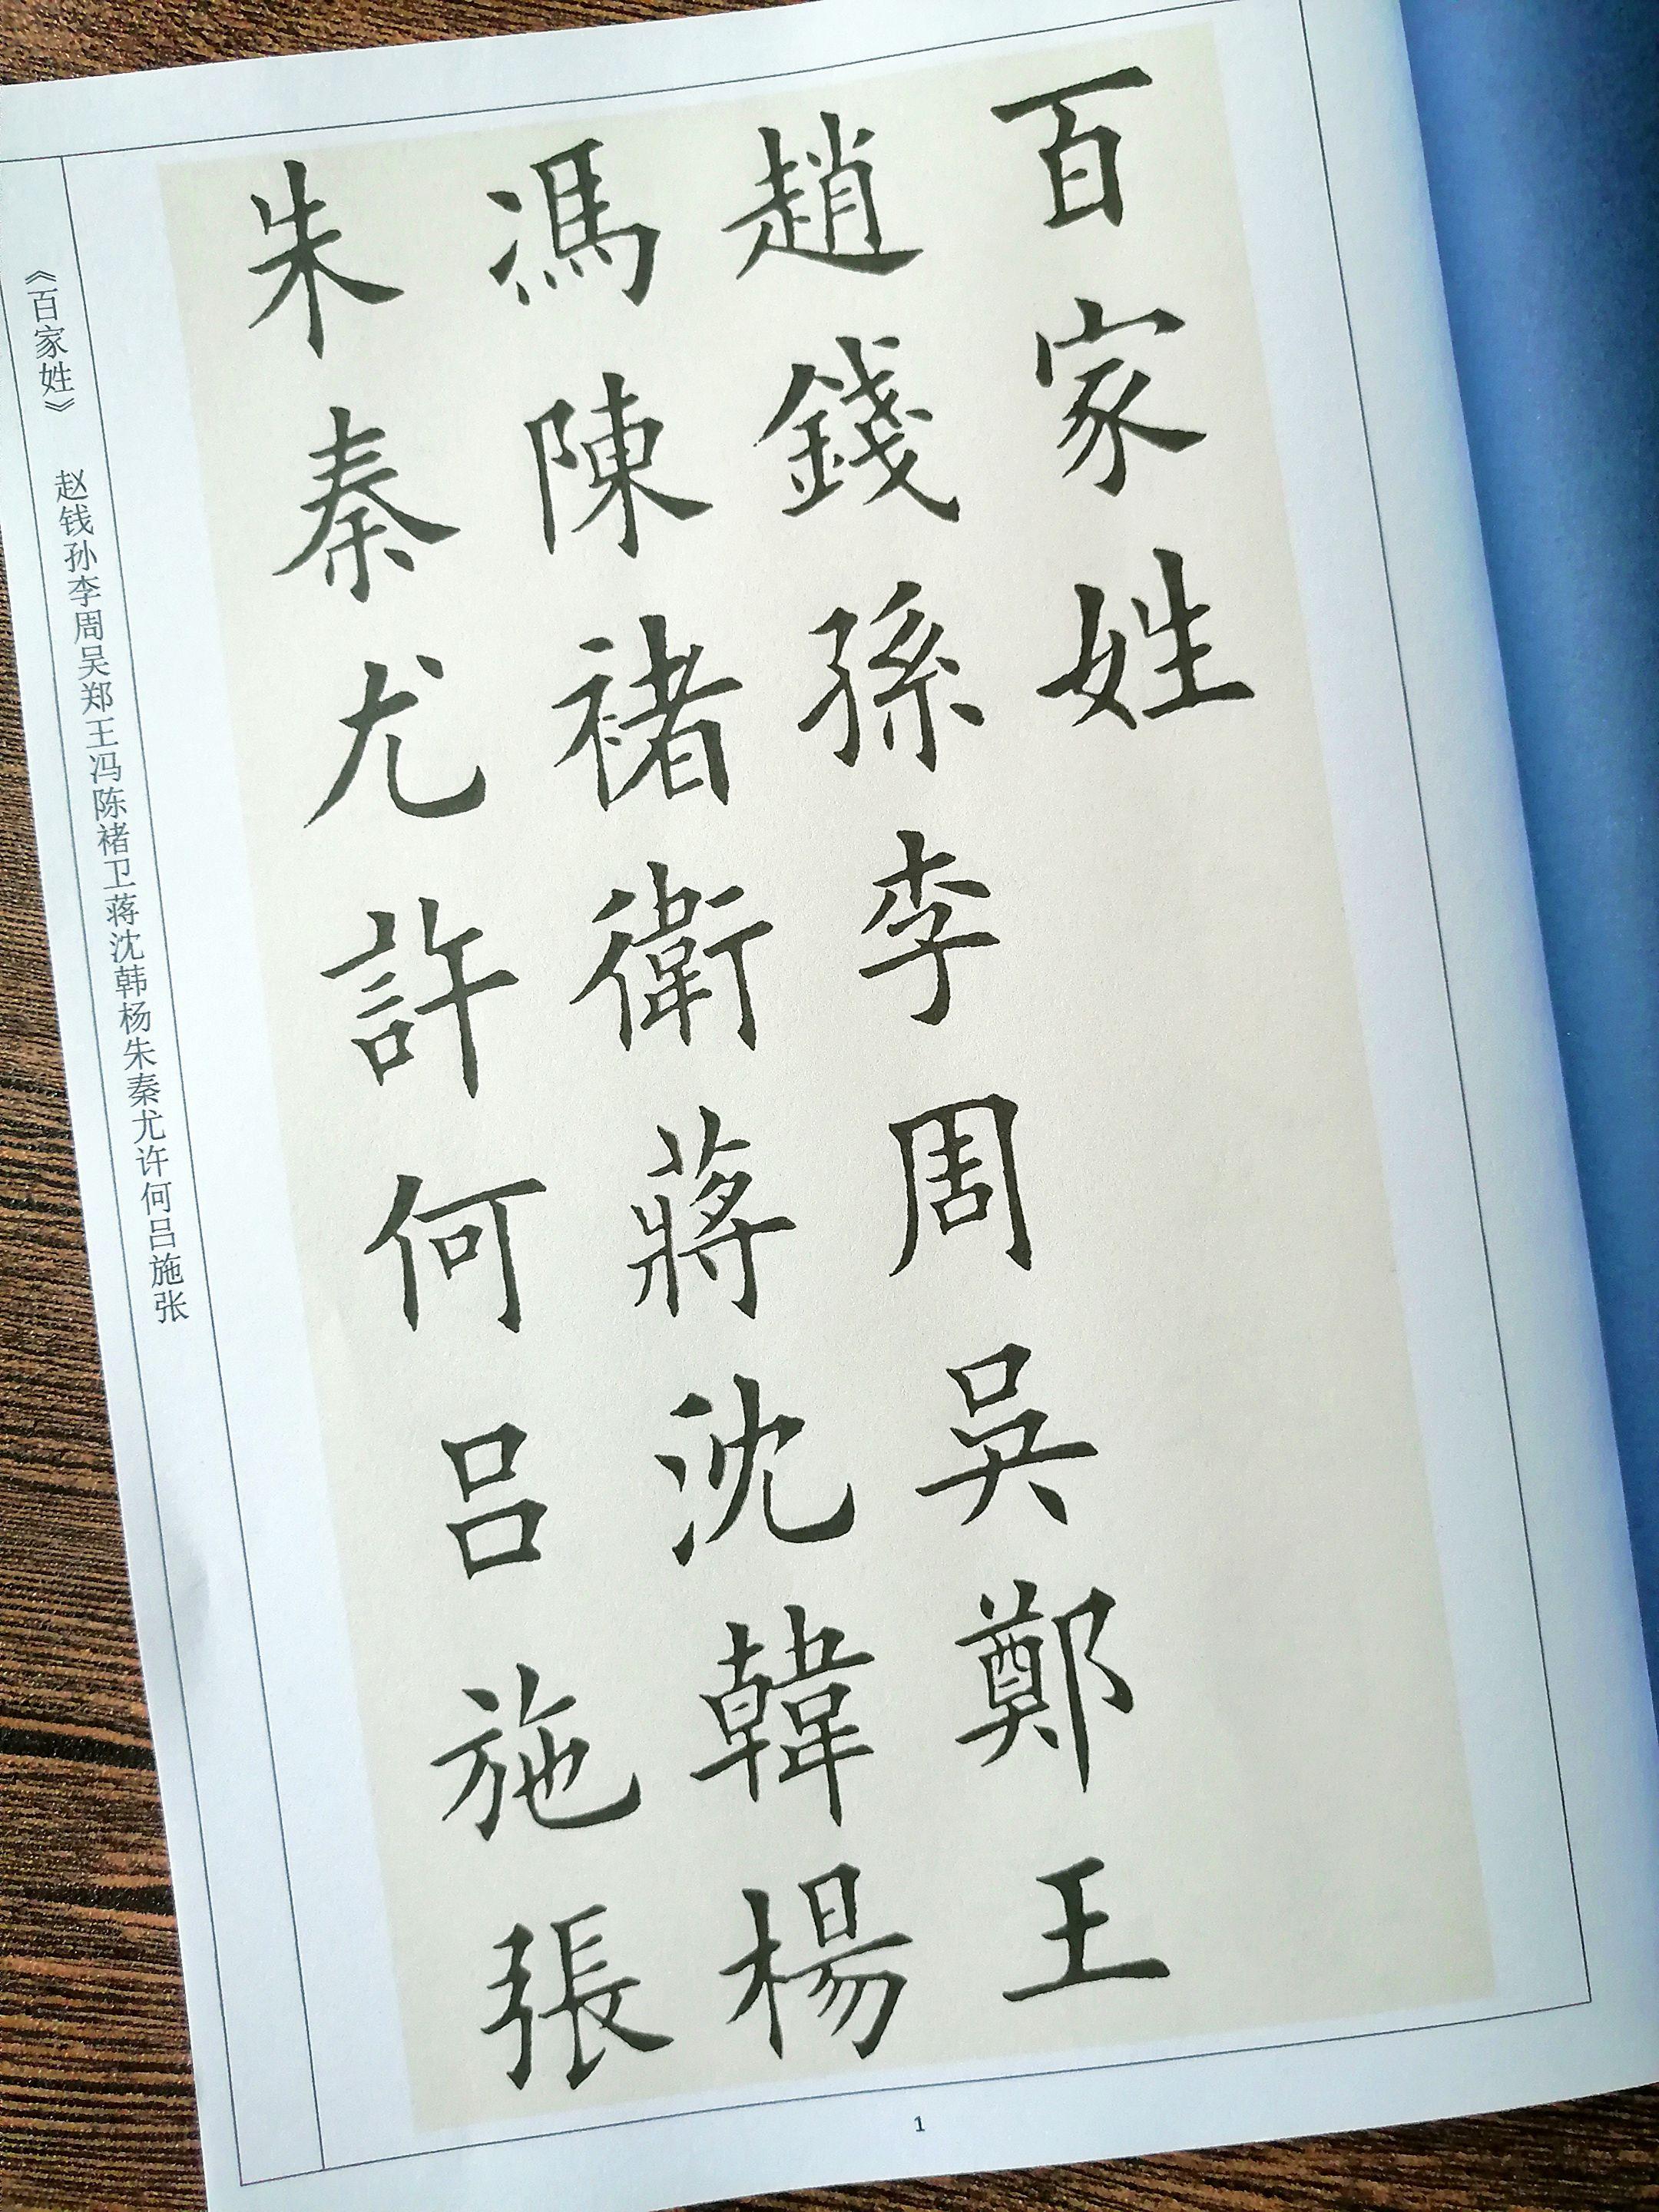 百家姓
趙錢孫李周吳鄭王
馮陳褚衛蔣沈韓楊
朱秦尤許何吕施張
《百家姓》 赵钱孙李周吴郑王冯陈褚卫蒋沈韩杨朱秦尤许何吕施张
1